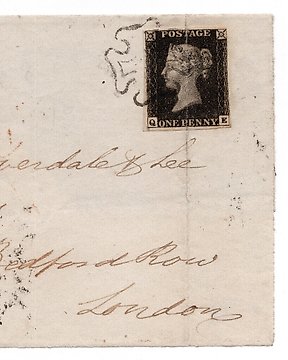 POSTAGE
Q E
ONE PENNY
& Lee
Bedford Row
London